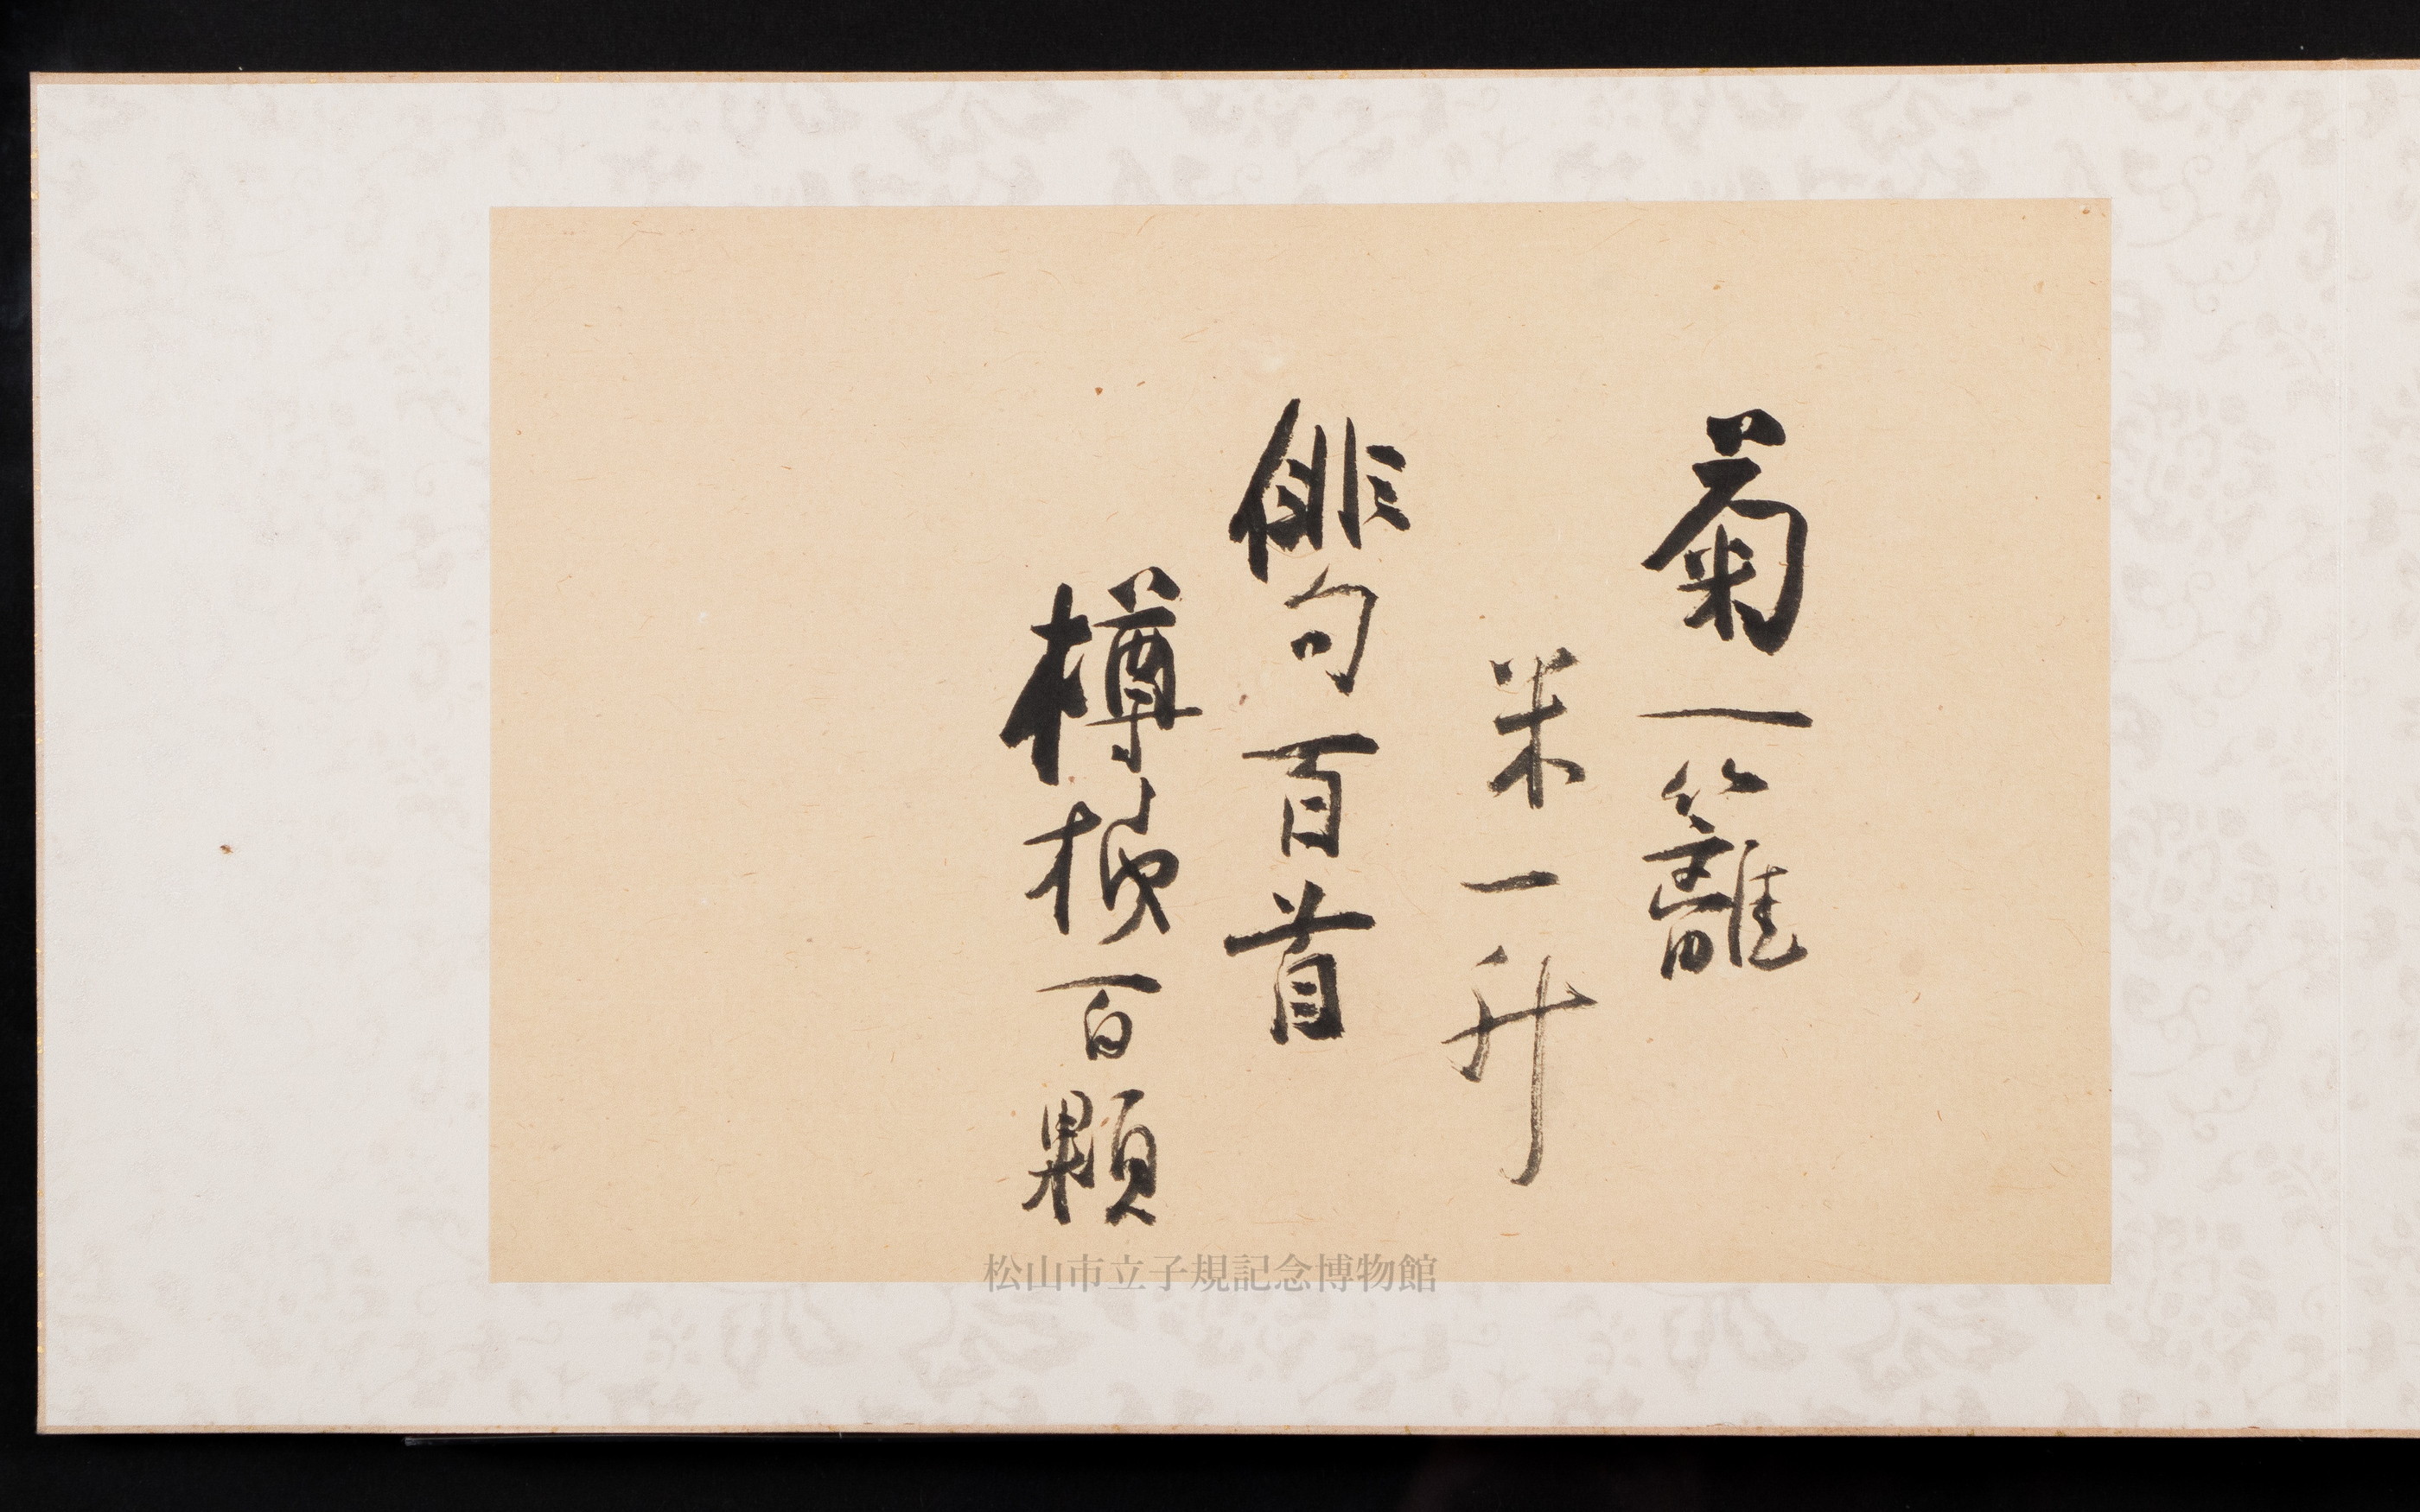 菊一籬
米一升
俳句百首
樽柿百顆
松山市立子規記念博物館